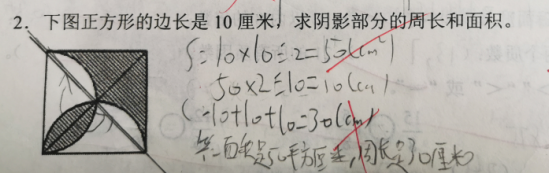 2. 下图正方形的边长是 10 厘米，求阴影部分的周长和面积。
S=10×10÷2=50(cm²)
50×2÷10=10(cm)
C=10+10+10=30(cm)
答：面积是50平方厘米，周长是30厘米